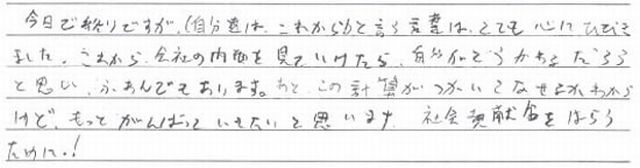 今日で終りですが、「自分達は、これからだと言う言葉は、とても心にひびき
ました。これから、会社の内面を見ていけたら、自分がどうかわるだろう
と思い、ふあんでもあります。あと、この計算がつかいこなせるかわから
けど、もっとがんばっていきたいと思います。社会貢献金をはらう
ために!